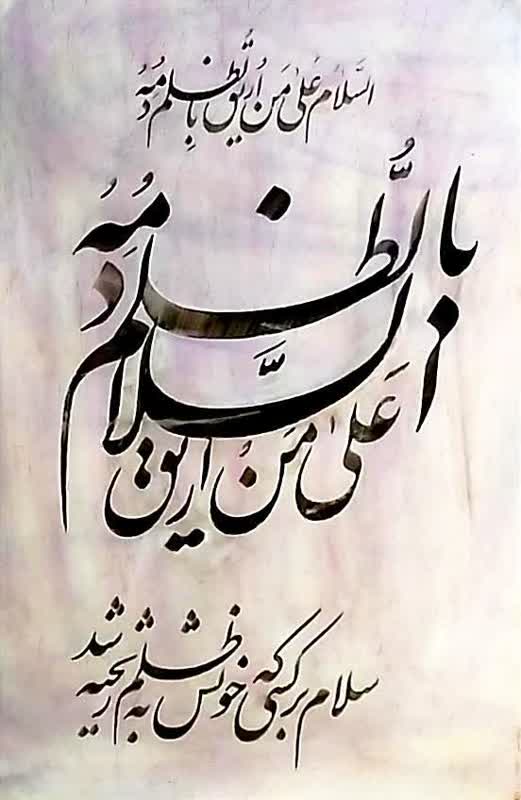 السَّلامُ عَلیٰ مَن اُریقَ بِالظُّلمِ دَمُهُ
السَّلامُ عَلیٰ مَن اُریقَ بِالظُّلمِ دَمُهُ
سلام بر کسی که خونش به ظلم ریخته شد